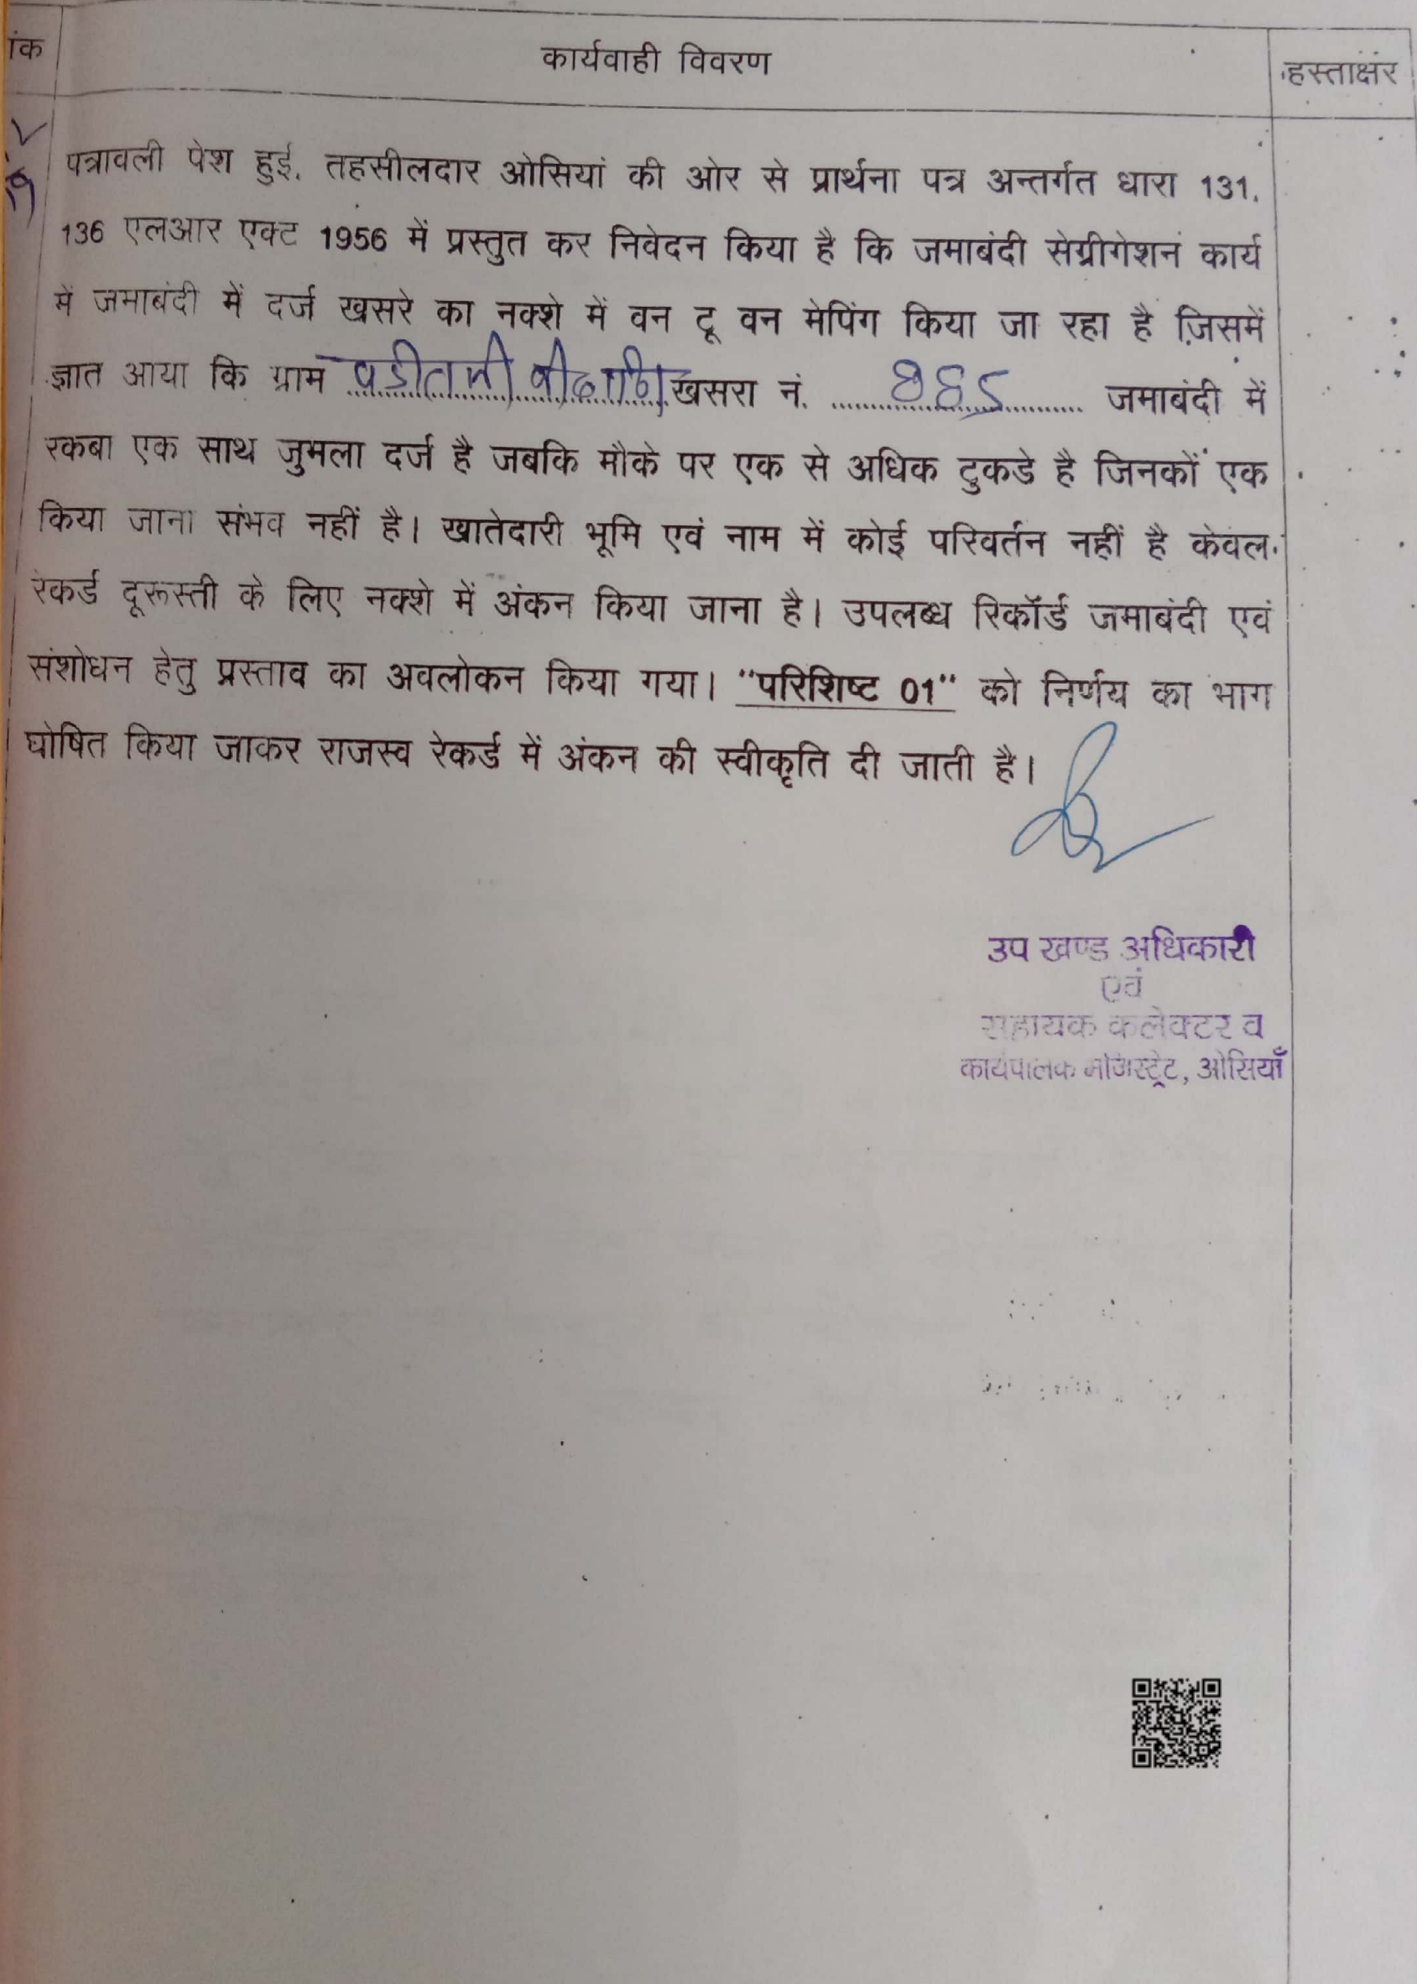 ांक
कार्यवाही विवरण
हस्ताक्षर
पत्रावली पेश हुई. तहसीलदार ओसियां की ओर से प्रार्थना पत्र अन्तर्गत धारा 131.
136 एलआर एक्ट 1956 में प्रस्तुत कर निवेदन किया है कि जमाबंदी सेग्रीगेशन कार्य
में जमाबंदी में दर्ज खसरे का नक्शे में वन टू वन मेपिंग किया जा रहा है जिसमें
ज्ञात आया कि ग्राम खसरा नं. जमाबंदी में
रकबा एक साथ जुमला दर्ज है जबकि मौके पर एक से अधिक टुकडे है जिनकों एक
किया जाना संभव नहीं है। खातेदारी भूमि एवं नाम में कोई परिवर्तन नहीं है केवल
रेकर्ड दूरूस्ती के लिए नक्शे में अंकन किया जाना है। उपलब्ध रिकॉर्ड जमाबंदी एवं
संशोधन हेतु प्रस्ताव का अवलोकन किया गया। "परिशिष्ट 01" को निर्णय का भाग
घोषित किया जाकर राजस्व रेकर्ड में अंकन की स्वीकृति दी जाती है।
उप खण्ड अधिकारी
एवं
सहायक कलेक्टर व
कार्यपालक मजिस्ट्रेट, ओसियाँ